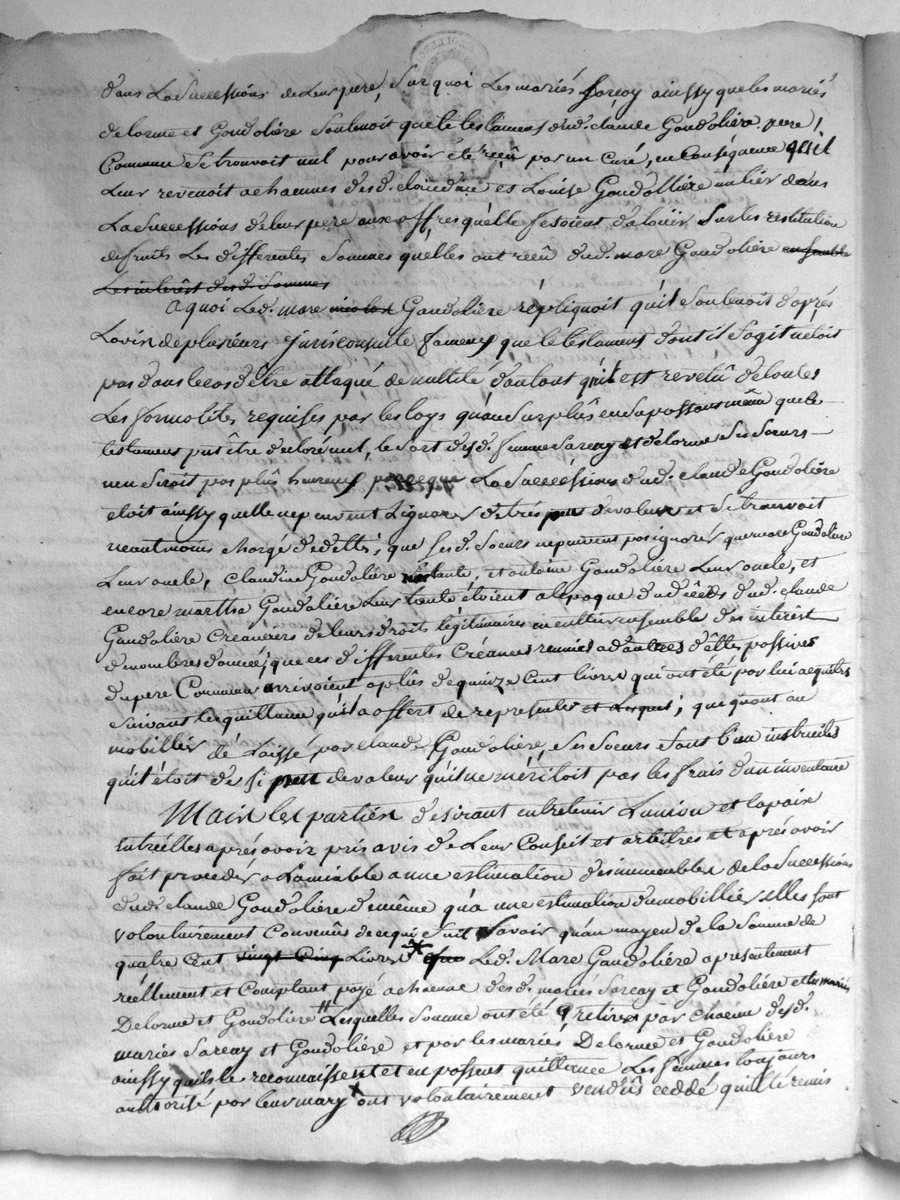 dans la successions de leur pere, sur quoi les mariés Sarcay ainssy que les mariés
delorme et Gondoliére soutenoit que le testament dud. claude Gondoliére pere
Commun se trouvoit nul pour avoir été reçû par un Curé, en Conséquence qu'il
leur revenoit a chacunes desd. claudine et Louise Gondolliére un tier dans
la successions de leur pere aux offres qu'elle fesoient d'alouër sur les restitution
de fruits les differentes sommes qu'elles ont reçû dud. marc Gondoliére ensemble
les interêst desd. sommes
a quoi led. marc nicolas Gondoliére répliquoit qu'il soutenoit d'après
l'avis de plusieurs jurisconsulte fameux que le testament dont il s'agit n'etoit
pas dans le cas d'etre attaqué de nullité d'autant qu'il est revetû de toutes
les formalités requises par les loys qu'au surplûs en suposant même que le
testament put être déclaré nul, le sort desd. femme Sarcay et delorme ses sœurs
n'en seroit pas plûs heureux parceque la succéssions dud. claude Gondoliére
etoit ainssy qu'elle ne peuvent l'ignorer de trés peu de valeur et se trouvoit
neantmoins chargé de dettes; que ses d. sœurs ne peuvent pas ignorer que marc Gondoliére
leur oncle, claudine Gondoliére tante, et antoine Gondoliére leur oncle, et
encore martha Gondoliére leur tante étoient a l'epoque du décès dud. claude
Gondoliére Creanciers de leurs droits légitimaires en cultur ensemble des interêst
de nombres d'année; que ces differentes Créances reunies a d'autres dettes passives
du pere Commun arrivoient a plûs de quinze Cent livres qui ont été par lui acquités
suivant les quittance qu'il a offert de representer et lesquels; que quant au
mobillier dé laissé par claude Gondoliére, ses sœurs sont bien instruites
qu'il étoit de si peu de valeur qu'il ne méritoit pas les frais d'un inventaire
Mais les parties desirant entretenir l'union et la paix
entr'elles aprés avoir pris avis de leur Conseil et arbitres et aprés avoir
fait proceder a l'amiable a une estimation des immeubles de la succession
dud. claude Gondoliére de même qu'a une estimation du mobillier elles sont
volontairement convenûs de ce qui suit savoir qu'au mayen de la somme de
quatre Cent vingt Cinq Livres * que led. Marc Gondoliére a presentement
réellement et Comptant payé a chacune desd. mariés Sarcay et Gondoliére et les mariés
Delorme et Gondoliére # lesquelles somme ont été retirée par chacun desd.
mariés Sarcay et Gondoliére et par les mariés Delorme et Gondoliére
ainssy qu'ils le reconnaissent et en passent quittance les femmes toujours
authorisé par leur mary x ont volontairement vendûs ceddé quitté remis